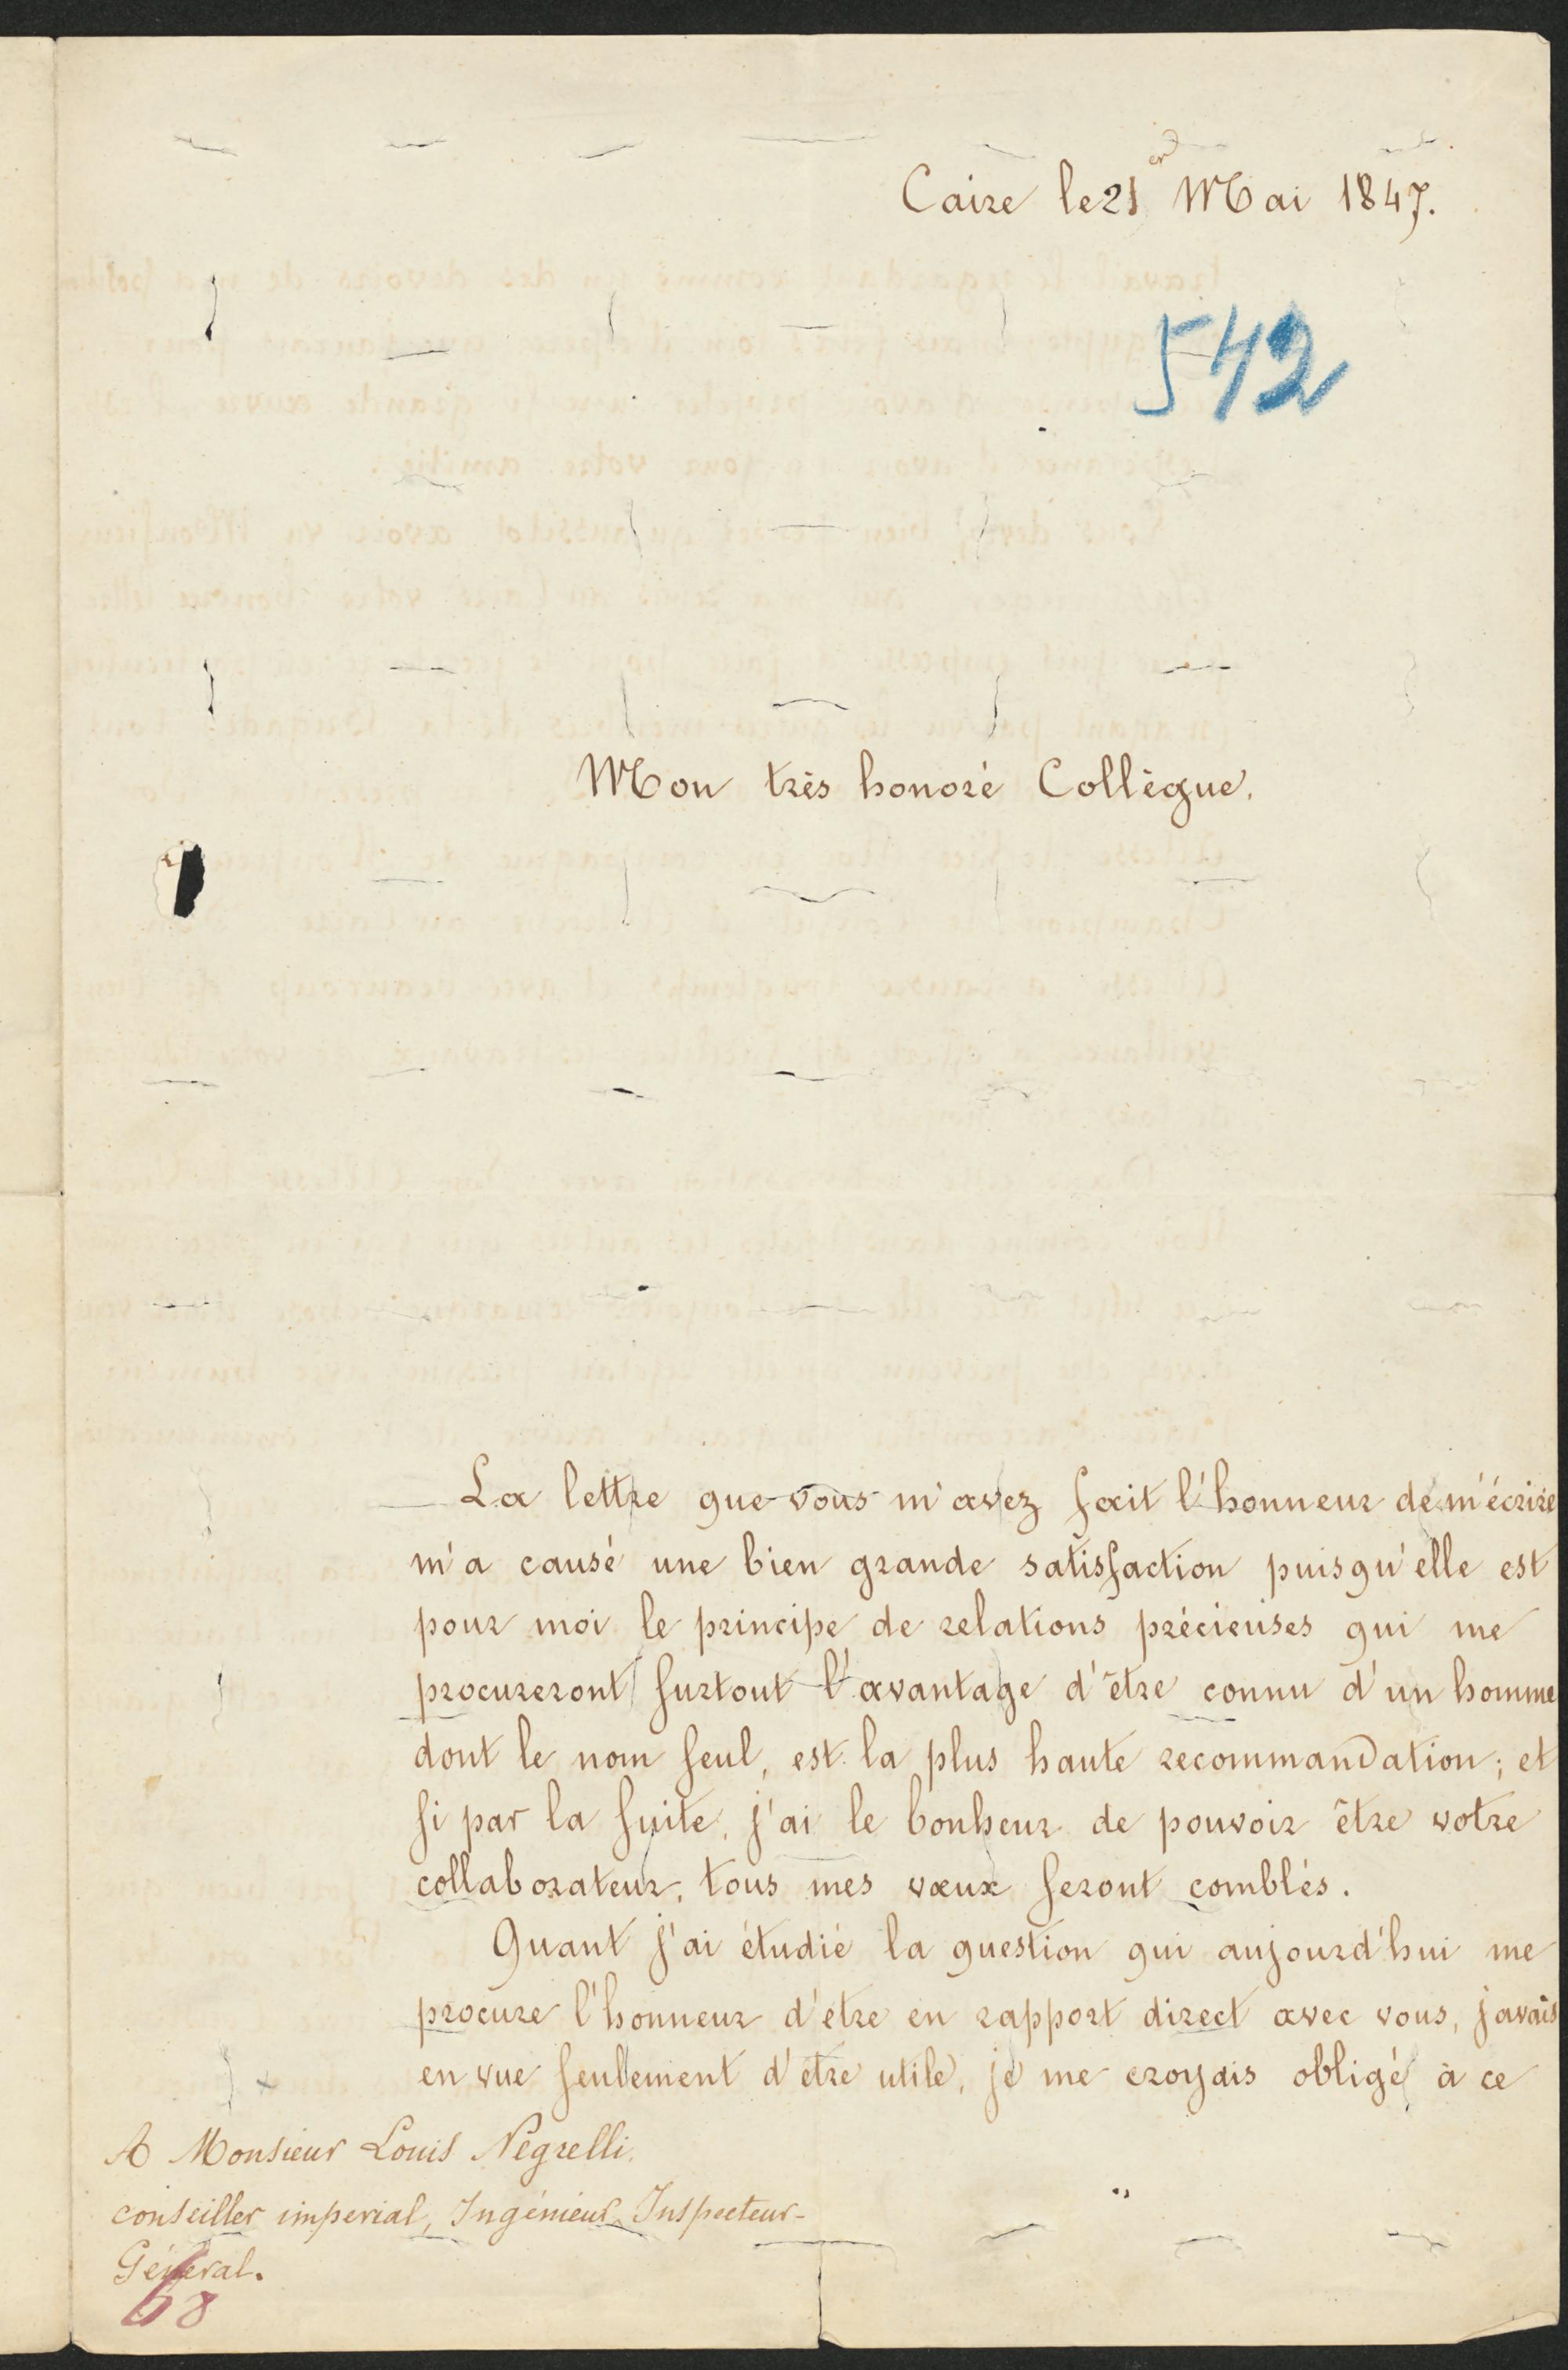 Caire le 21 er Mai 1847.
542
Mon très honoré Collègue.
La lettre que vous m'avez fait l'honneur de m'écrire
m'a causé une bien grande satisfaction puisqu'elle est
pour moi le principe de relations précieuses qui me
procureront surtout l'avantage d'être connu d'un homme
dont le nom seul, est la plus haute recommandation; et
si par la suite, j'ai le bonheur de pouvoir être votre
collaborateur, tous mes vœux seront comblés.
Quant j'ai étudié la question qui aujourd'hui me
procure l'honneur d'etre en rapport direct avec vous, javais
en vue seulement d'etre utile, je me croyais obligé à ce
A Monsieur Louis Négrelli.
conseiller imperial, Ingénieur, Inspecteur-
Géneral.
68